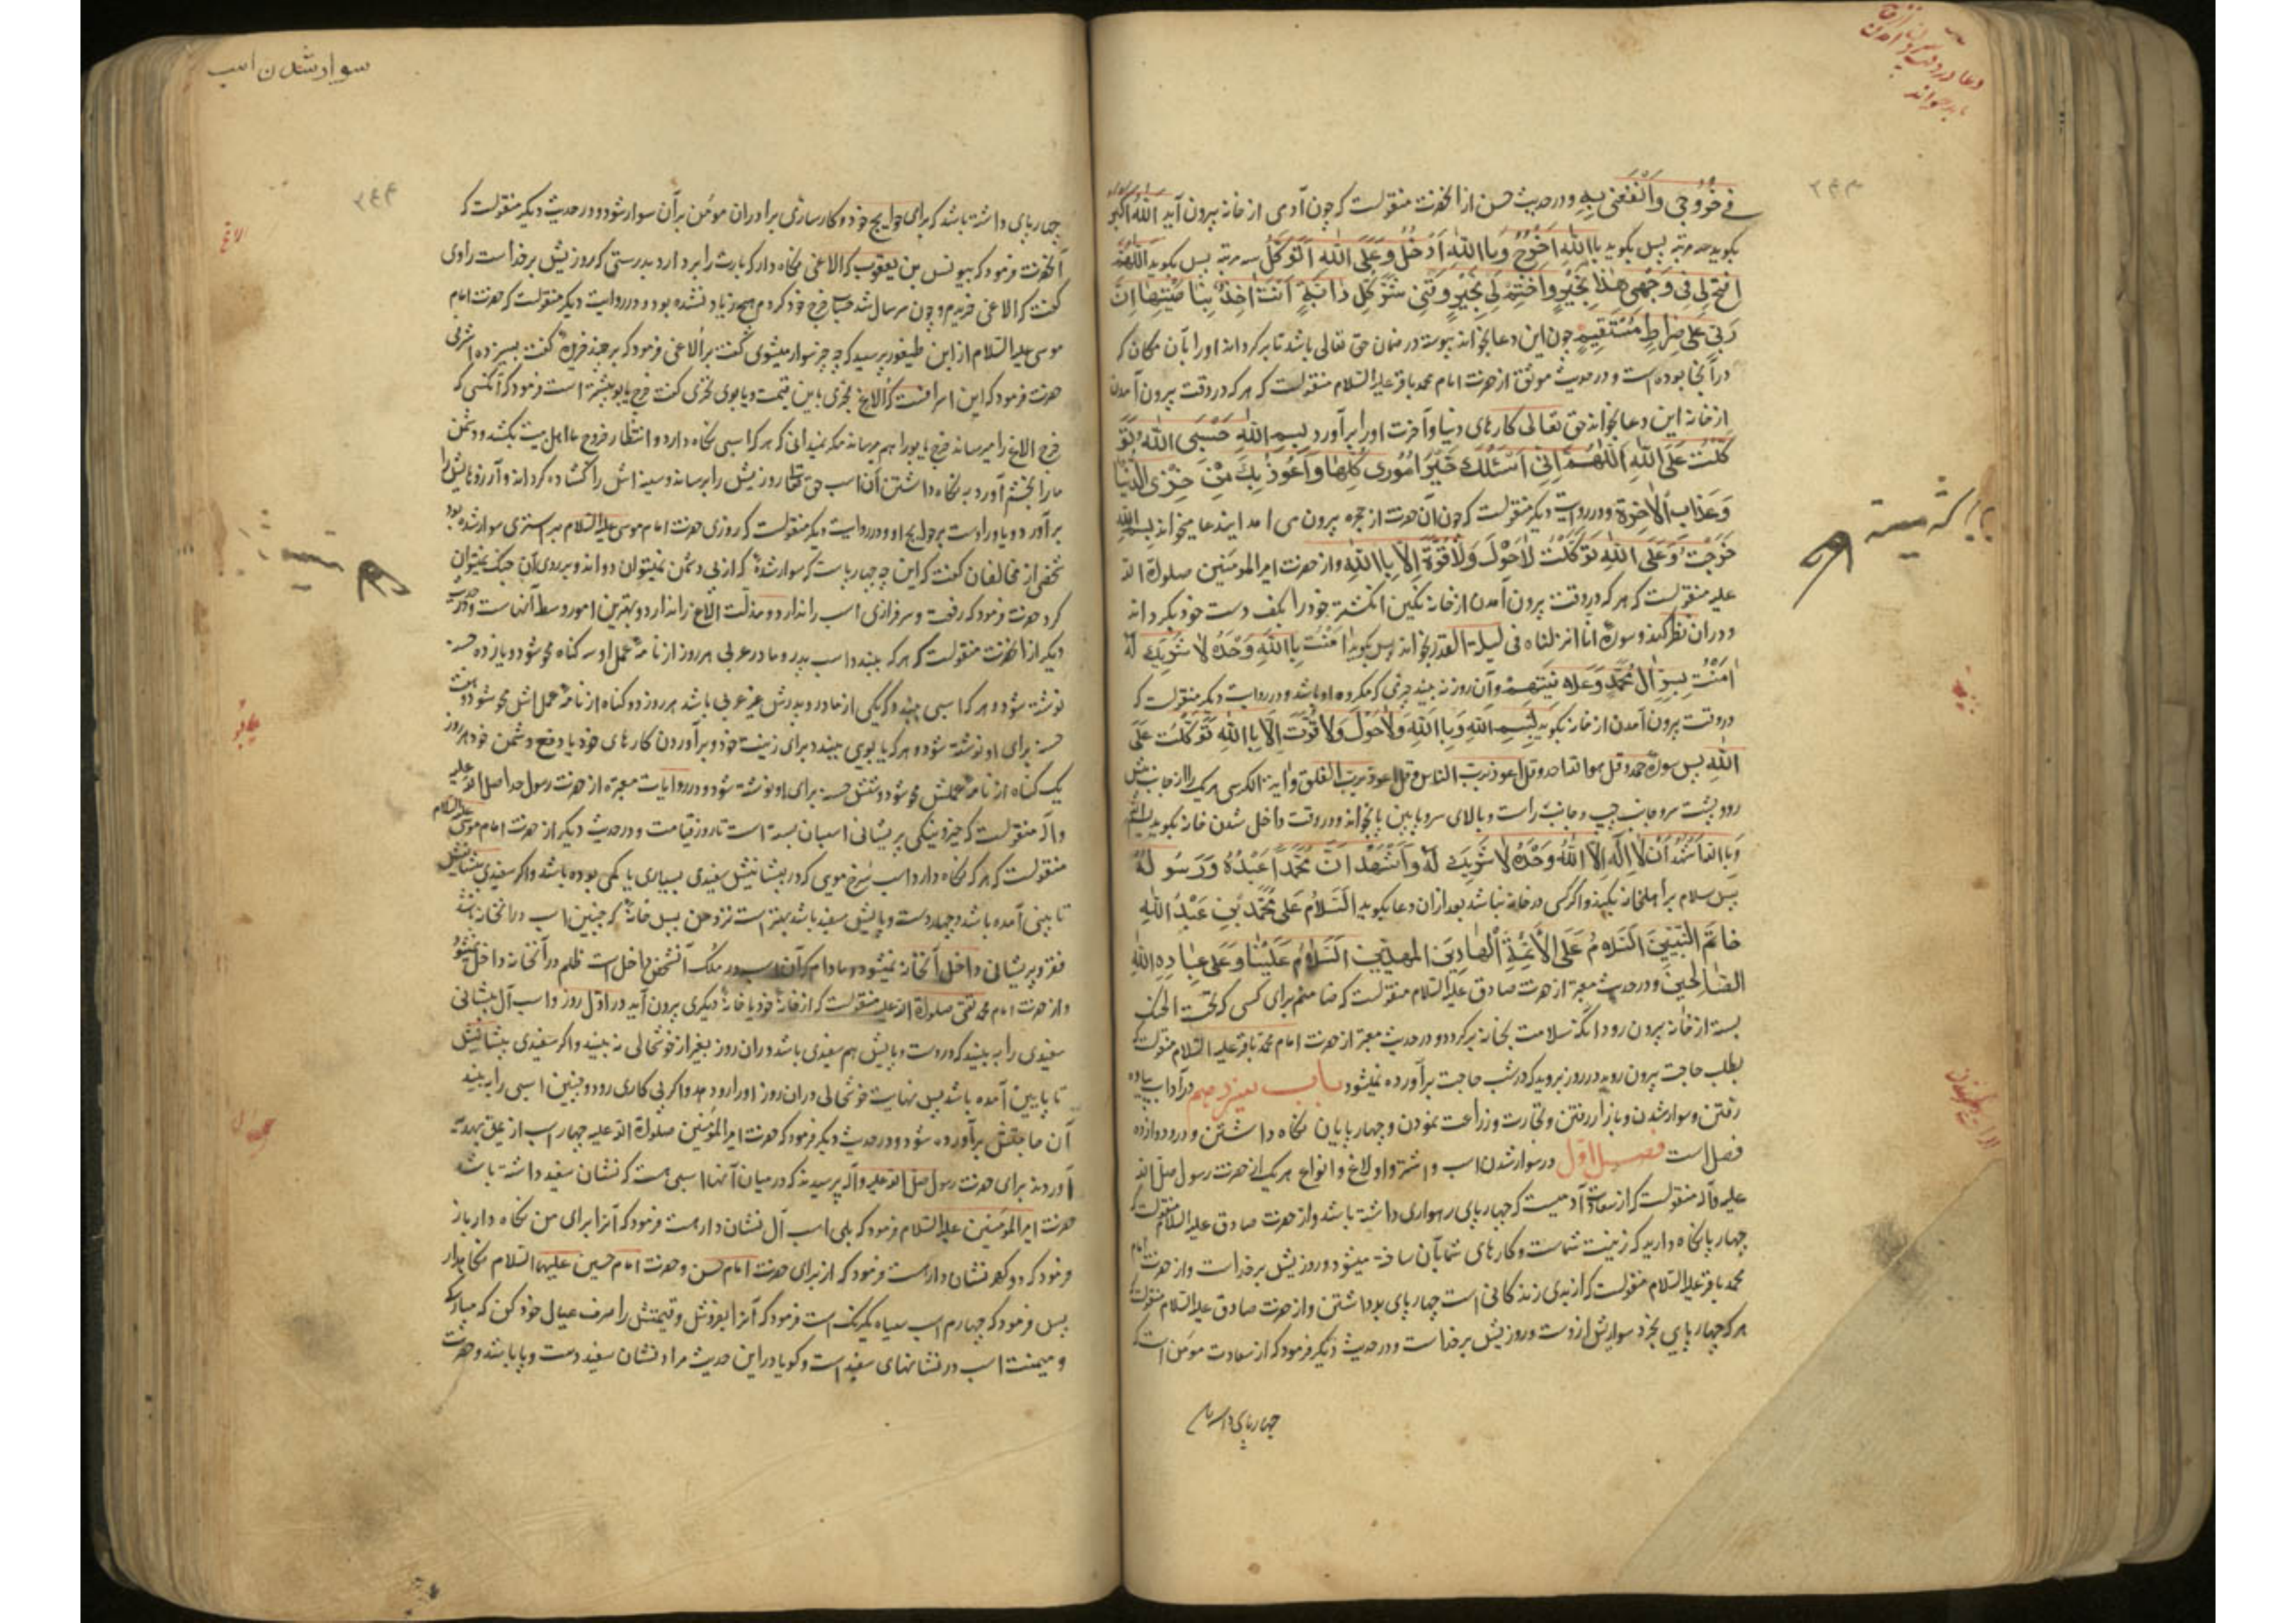 فى خُرُوجى وَانْفَعْنى بِهِ و در حدیث حسن از آنحضرت منقولست که چون آدمی از خانه بیرون آید اَللهُ اَکْبَر
بگوید سه مرتبه پس بگوید بِاللهِ اَخْرُجُ وَ بِااللهِ اَدْخُلُ وَ عَلَى اللهِ اَتَوَکَّلُ سه مرتبه پس بگوید اَللّهُمَّ
افْتَحْ لى فى وَجْهى هذا بِخَیْرٍ وَاخْتِمْ لى بِخَیْرٍ وَ قِنى شَرَّ کُلِّ دابَّةٍ اَنْتَ اخِذٌ بِناصِیَتِها اِنَّ
رَبّى عَلى صِراطٍ مُسْتَقیمٍ چون این دعا بخواند پیوسته در ضمان حق تعالی باشد تا برگرداند او را بآن مکان که
در آنجا بوده است و در حدیث موثق از حضرت امام محمد باقر علیه السلام منقولست که هر که در وقت بیرون آمدن
از خانه این دعا بخواند حق تعالی کارهای دنیا و آخرت او را برآورد بِسْمِ اللهِ حَسْبِىَ اللهُ تَوَ
کَّلْتُ عَلَى اللهِ اَللّهُمَّ اِنّى اَسْئَلُکَ خَیْرَ اُمُورى کُلِّها وَ اَعُوذُ بِکَ مِنْ خِزْىِ الدُّنْیا
وَ عَذابِ الْاخِرَةِ و در روایت دیگر منقولست که چون آن حضرت از حجره بیرون می امدایند عا میخواند بِسْمِ اللهِ
خَرَجْتُ وَ عَلَى اللهِ تَوَکَّلْتُ لاحَوْلَ وَلاقُوَّةَ اِلاّ بِااللهِ و از حضرت امیر المومنین صلوة الله
علیه منقولست که هر که در وقت بیرون آمدن از خانه نگین انگشتر خود را بکف دست خود بگرداند
و در ان نظر کند و سوره انا انزلناه فی لیلة القدر بخواند پس بگوید امَنْتُ بِااللهِ وَحْدَهُ لاشَریکَ لَهُ
امَنْتُ بِسِرِّ الِ مُحَمَّدٍ وَ عَلانِیَتِهِمْ در آن روز نه بیند چیزی که مکروه او باشد و در روایت دیگر منقولست که
در وقت بیرون آمدن از خانه بگوید بِسْمِ اللهِ وَ بِااللهِ وَلاحَوْلَ وَلاقُوَّتَ اِلاّ بِااللهِ تَوَکَّلْتُ عَلَى
اللهِ پس سوره حمد و قل هو الله احد و قل اعوذ برب الناس و قل اعوذ برب الفلق و ایة الکرسی هر یک را از جانب پیش
رو و پشت سر و جانب چپ و جانب راست و بالای سر و پایین پا بخواند و در وقت داخل شدن خانه بگوید بسم الله
وَ بِاالله اَشْهَدُ اَنْ لااِلهَ اِلاَّ اللهُ وَحْدَهُ لاشَریکَ لَهُ وَ اَشْهَدُ اَنَّ مُحَمَّداً عَبْدُهُ وَ رَسُولُهُ
پس سلام بر اهلخانه بکند و اگر کسی در خانه نباشد بعد ازان دعا بگوید اَلسَّلامُ عَلى مُحَمَّدِ بْنِ عَبْدِ اللهِ
خاتَمِ النَّبِیّینَ اَلسَّلامُ عَلَى الْاَئِمَّةِ الْهادِینَ الْمهدیّینَ اَلسَّلامُ عَلَیْنا وَ عَلى عِبادِ اللهِ
الصّالِحینَ و در حدیث معتبر از حضرت صادق علیه السلام منقولست که ضامنم برای کسی که تحت الحنک
بسته از خانه بیرون رود انکه سلامت بخانه برگردد و در حدیث معتبر از حضرت امام محمد باقر علیه السلام منقولست که
بطلب حاجت بیرون روید در روز بروید که در شب حاجت برآورده نمیشود باب سیزدهم در آداب پیاده
رفتن و سوار شدن و بازار رفتن و تجارت و زراعت نمودن و چهارپایان نگاه داشتن و در و دوازده
فصل است فصل اوّل در سوار شدن اسب و اشتر و اولاغ و انواع هر یک از حضرت رسول صلی الله
علیه و آله منقولست که از سعادت آدمیست که چهارپای رهواری داشته باشد و از حضرت صادق علیه السلام منقولست که
چهارپا نگاه دارید که زینت شماست و کارهای شما بآن ساخته میشود و روزیش برخداست و از حضرت امام
محمد باقر علیه السلام منقولست که از بدی زندکانی است چهارپای بد داشتن و از حضرت صادق علیه السلام منقولست که
هر که چهارپایی بخرد سواریش ازوست و روزیش برخداست و در حدیث دیگر فرمود که از سعادت مومن است که
چهارپای داشته
سوار شدن اسب
چهارپای داشته باشد که برای حوایج خود و کارسازی برادران مومن برآن سوار شود و در حدیث دیگر منقولست که
آنحضرت فرمود که بیونس بن یعقوب که الاغی نگاه دار که بارت را بردارد بدرستی که روزیش برخداست راوی
گفت که الاغی خریدم و چون سر سال شد حساب خرج خود کردم هیچ زیاد نشده بود و در روایت دیگر منقولست که حضرت امام
موسی علیه السلام از ابن طیفور پرسید که بچه چیز سوار میشوی گفت بر الاغی فرمود که بچند خریده گفت بسیزده اشرفی
حضرت فرمود که این اسرافست که الاغ بخری باین قیمت و یابوی نخری گفت خرج یابو بیشتر است فرمود که آنکسی که
خرج الاغ را میرساند خرج یابو را هم میرساند مگر نمیدانی که هر که اسبی نگاه دارد و انتظار فرج ما اهل بیت بکشد و دشمن
ما را بخشم آورد به نگاه داشتن آن اسب حق تعالی روزیش را برساند و سینه اش را گشاده گرداند و آرزوهایش را
برآورد و یاور اوست برحوایج او و در روایت دیگر منقولست که روزی حضرت امام موسی علیه السلام بر استری سوار شده بود
شخصی از مخالفان گفت که این چه چهارپاست که سوار شدهٔ که از پی دشمن نمیتوان دواند و بر روی آن جنک نمیتوان
کرد حضرت فرمود که رفعت و سرفرازی اسب را ندارد و مذلت الاغ را ندارد و بهترین امور وسط آنهاست و در حدیث
دیگر از آنحضرت منقولست که هر که ببندد اسب پدر و مادر عربی هر روز از نامهٔ عمل او سه گناه محو شود و یازده حسنه
نوشته شود و هر که اسبی ببندد که یکی از مادر و پدرش غیر عربی باشد هر روز دو گناه از نامهٔ عمل اش محو شود و هفت
حسنه برای او نوشته شود و هر که یابویی ببندد برای زینت خود و برآوردن کارهای خود یا دفع دشمن خود هر روز
یک گناه از نامهٔ عملش محو شود و شش حسنه برای او نوشته شود و در روایات معتبره از حضرت رسول خدا صلی الله علیه
و آله منقولست که خیر و نیکی بر پیشانی اسبان بسته است تا روز قیامت و در حدیث دیگر از حضرت امام موسی علیه السلام
منقولست که هر که نگاه دارد اسب سُرخ مویی که در پیشانیش سفیدی بسیاری یا کمی بوده باشد و اگر سفیدی پیشانیش
تا بینی آمده باشد و چهار دست و پایش سفید باشد بهتر است نزد من پس خانهٔ که چنین اسب در آنخانه باشد
فقر و پریشانی داخل آنخانه نمیشود و مادام که آن اسب در ملک آنشخص داخل است ظلم در آنخانه داخل نمیشود
و از حضرت امام محمد تقی صلوة الله علیه منقولست که از خانهٔ خود یا خانهٔ دیگری بیرون آید در اوّل روز و اسب آل پیشانی
سفیدی را به بیند که دوست و پایش هم سفیدی باشد دران روز بغیر از خوشحالی نه بیند و اگر سفیدی پیشانیش
تا پایین آمده باشد پس نهایت خوشحالی دران روز او را رو دهد و اگر پی کاری رود و چنین اسبی را به بیند
آن حاجتش برآورده شود و در حدیث دیگر فرمود که حضرت امیر المومنین صلوة الله علیه چهار اسب از یمن بهدیّه
آوردند برای حضرت رسول صلی الله علیه و آله پرسیدند که در میان آنها اسبی هست که نشان سفید داشته باشد
حضرت امیر المومنین علیه السلام فرمود که بلی اسب آل نشان دار هست فرمود که آنرا برای من نگاه دار باز
فرمود که دو کهر نشان دار هست فرمود که از برای حضرت امام حسن و حضرت امام حسین علیهما السلام نگاهدار
پس فرمود که چهارم اسب سیاه یکرنک است فرمود که آنرا بفروش و قیمتش را صرف عیال خود کن که مبارکی
و میمنت اسب در نشانهای سفید است و گویا در این حدیث مراد نشان سفید دست و پا باشد و حضرت